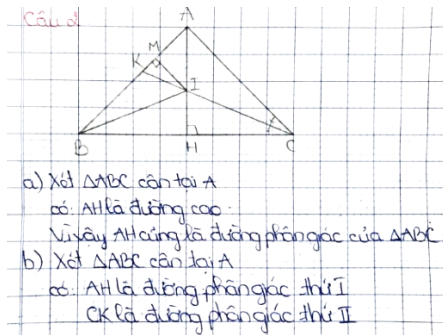 Câu 2
A
M
K
I
B
H
C
a) Xét ΔABC cân tại A
có: AH là đường cao
Vì vậy AH cũng là đường phân giác của ΔABC
b) Xét ΔABC cân tại A
có: AH là đường phân giác thứ I
CK là đường phân giác thứ II